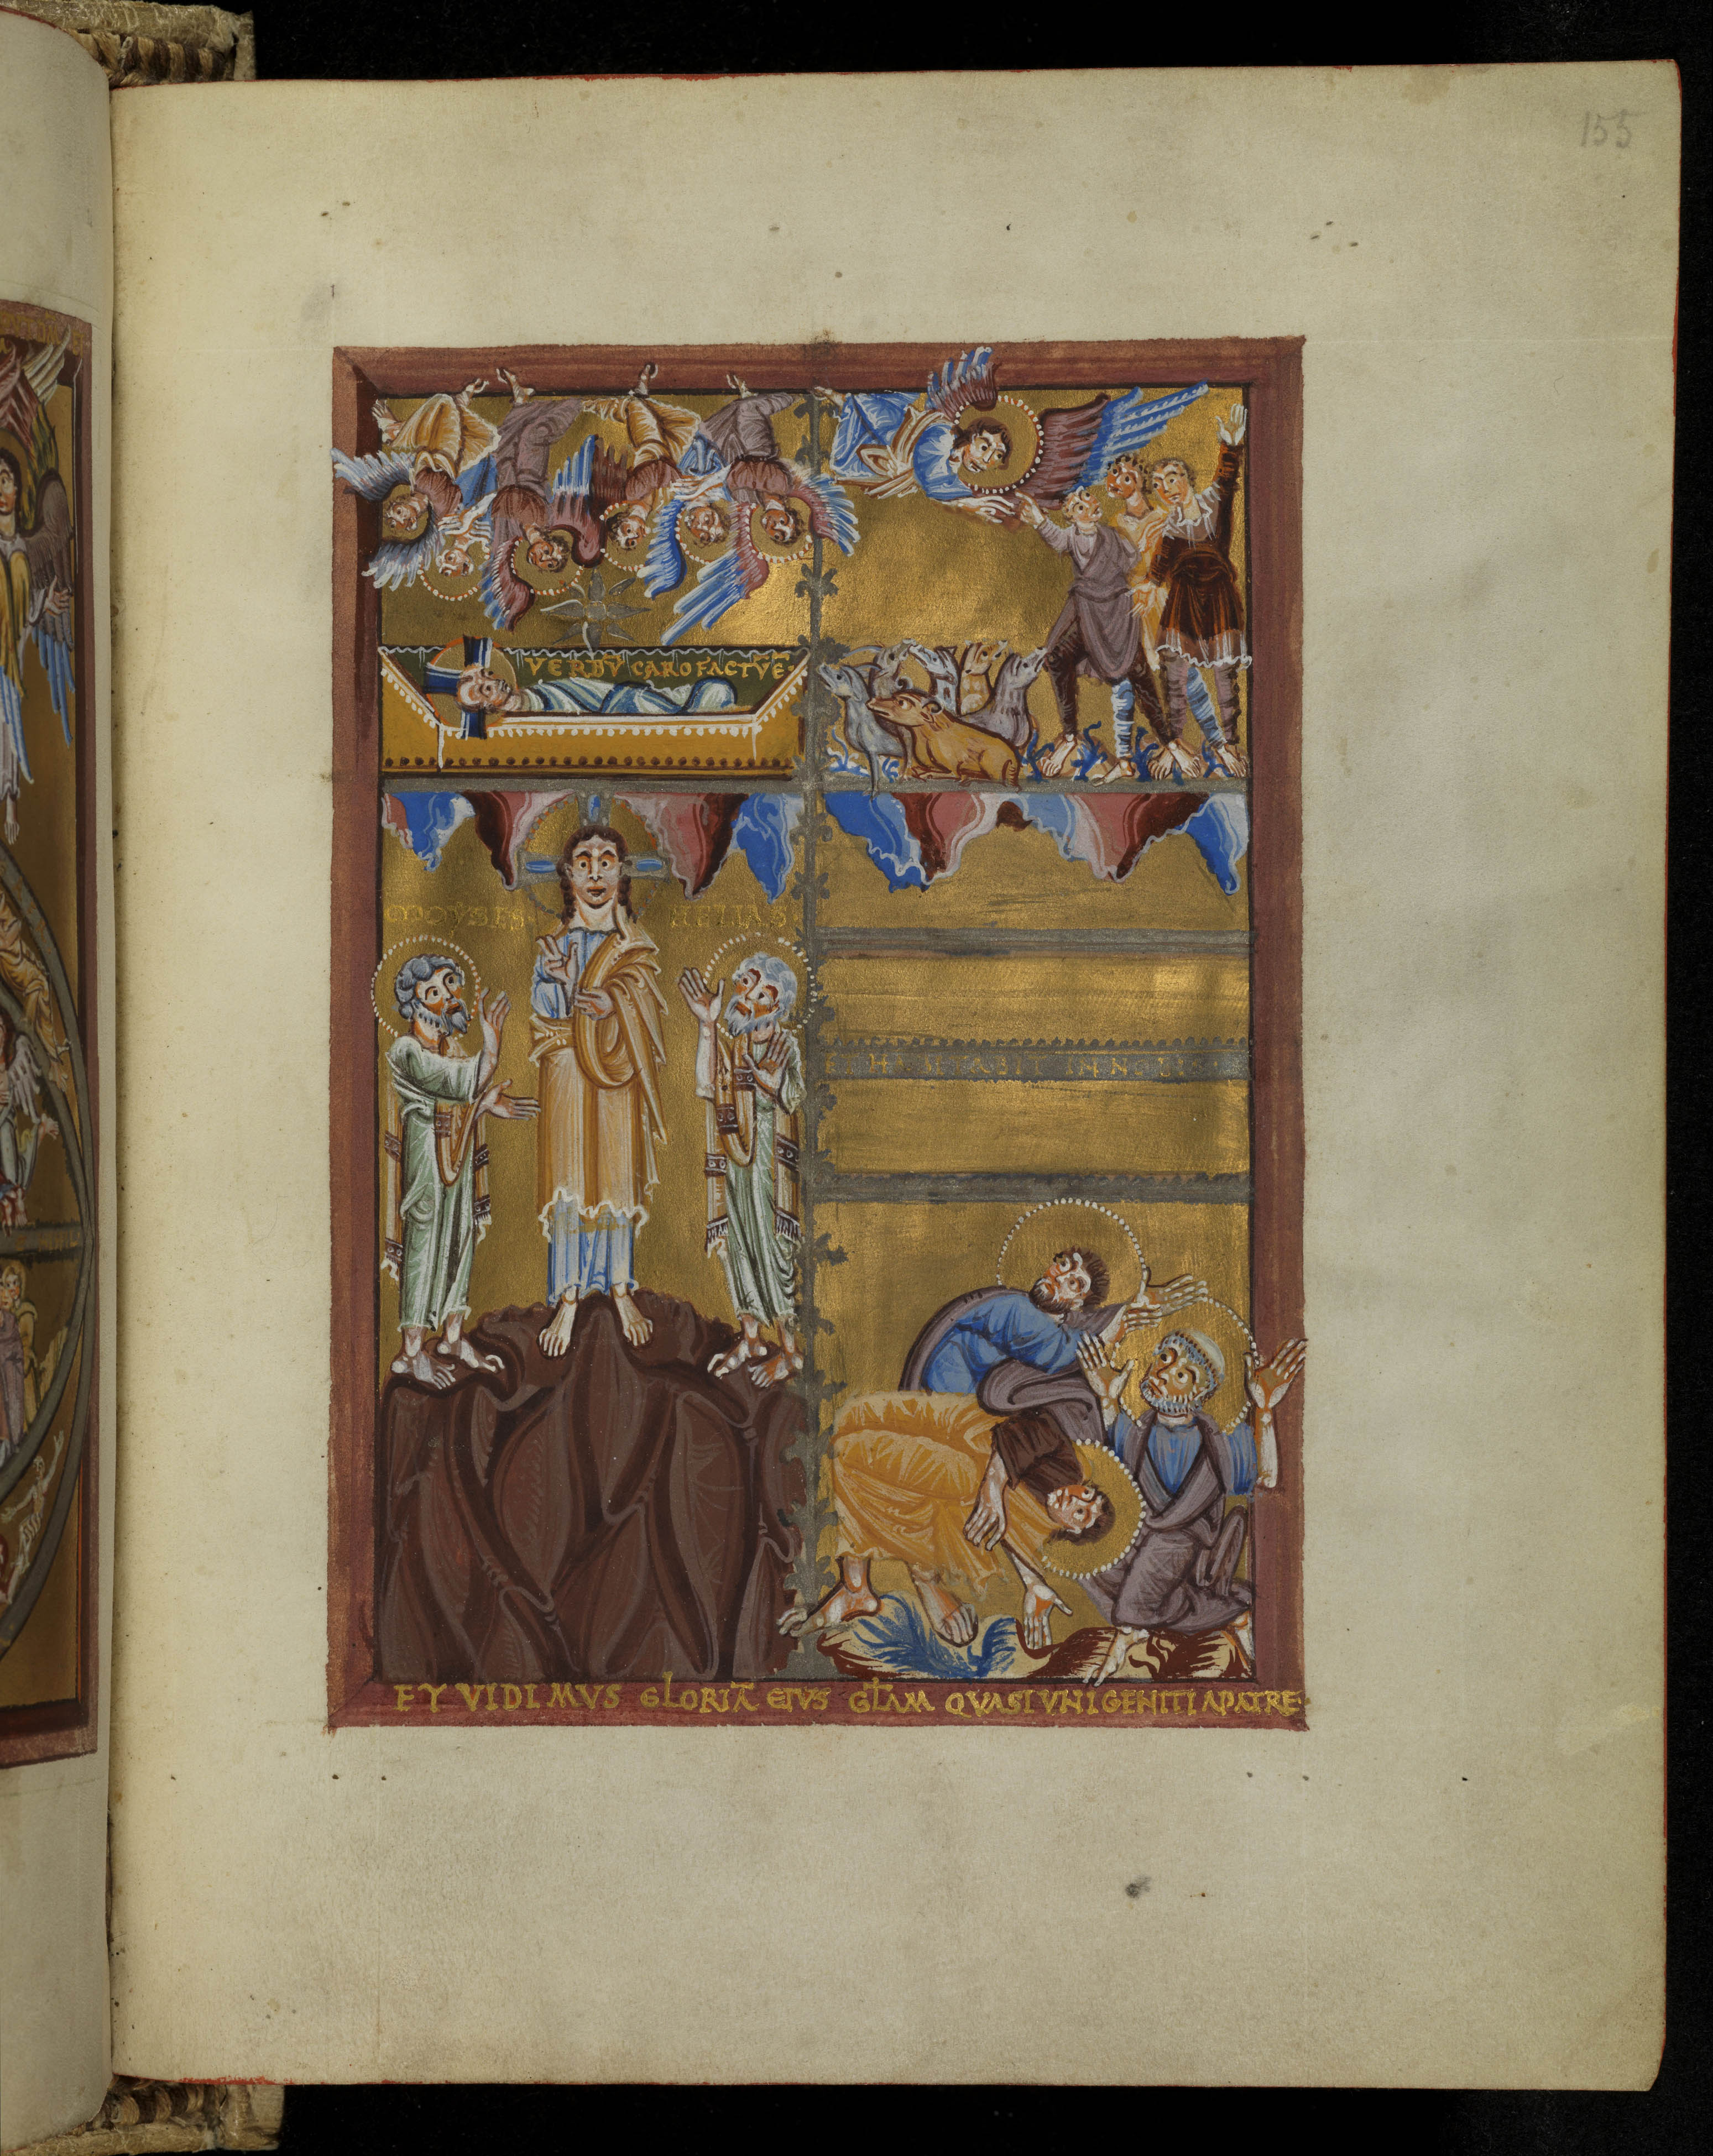 155
VERBV̅ CARO FACTV̅ E̅·
MOYSES· HELIAS·
ET HABITABIT IN NOBIS·
ET VIDIMVS GLORIA̅ EIVS GL̅AM QVASI VNIGENITI A PATRE·